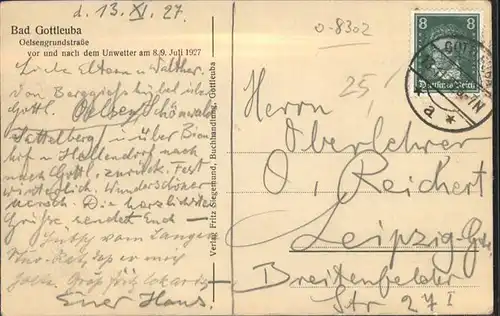 d. 13. XI. 27.
Bad Gottleuba
Oelsengrundstraße
vor und nach dem Unwetter am 8./9. Juli 1927
Liebe Eltern u. Walther.
Von Berggießhübel bin ich
Gottl. Oelsen, Schönwald
Sattelberg u. über Bien
hof u. Hellendorf nach
nach Gottl. zurück. Fast
winterlich. Wunderschöner
Die herzlichsten
Grüße sendet Euch —
vom Langen
daß er mich
Gruß Fritz
Euer Hans.
Verlag Fritz Siegemund, Buchhandlung, Gottleuba
0-8302
25,
8 8
Deutsches Reich
GOTTLEUBA
a *
Herrn
Oberlehrer
O. Reichert
Leipzig-Go.
Breitenfelder
Str 27 I